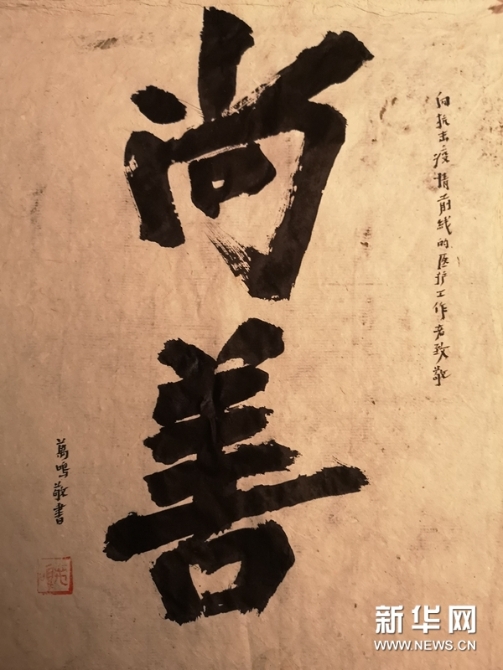 向抗击疫情前线的医护工作者致敬
尚善
书
新华网
WWW.NEWS.CN